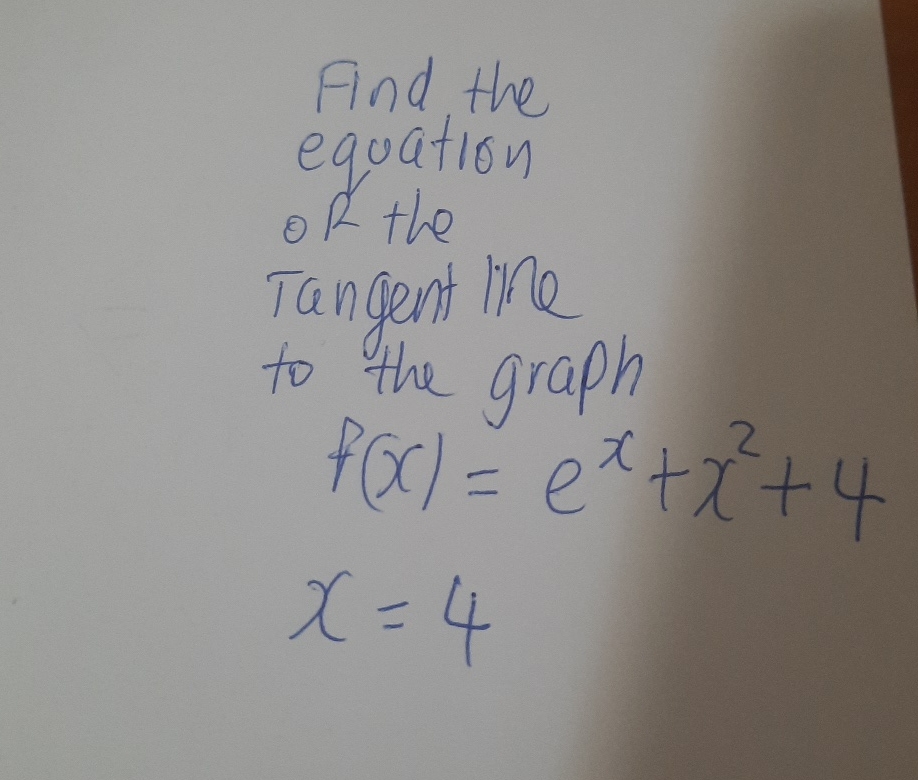 Find the
equation
of the
Tangent line
to the graph
f(x) = e^x + x^2 + 4
x = 4